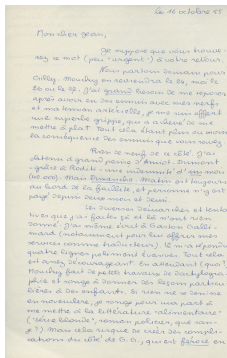 Le 16 octobre 55
Mon cher Jean,
Je suppose que vous trouve-
rez ce mot (peu "urgent") à votre retour.
Nous partons demain pour
Mouthy en reviendra le 25, moi le
26 ou le 27. J'ai grand besoin de me reposer
après avoir eu des ennuis avec mes nerfs
et ma tension artérielle, je me suis offert
une superbe grippe, qui a achevé de me
mettre à plat. Tout cela étant plus ou moins
la conséquence des ennuis que vous savez.
Rien de neuf de ce côté. J'ai
obtenu à grand peine d'Amiot-Dumont
une indemnité d'
Mais Dimanche Matin est toujours
au bord de la faillite, et personne n'y est
payé depuis deux mois et demi.
Les diverses démarches et tenta-
tives que j'ai faites çà et là n'ont rien
donné. J'ai même écrit à Gaston Galli-
mard (notamment pour lui offrir mes
services comme traducteur). Il m'a répondu
quatre lignes poliment évasives. Tout cela
est assez décourageant. En attendant (quoi?)
Mouthy fait de petits travaux de dactylogra-
phie et songe à donner des leçons particu-
lières à des enfants. Si rien ne se dessine
en novembre, je songe pour ma part à
me mettre à la littérature "alimentaire"
("série blonde", roman policier, que sais-
je?) Mais cela risque de créer des compli-
cations du côté de G.G., qui est féroce en